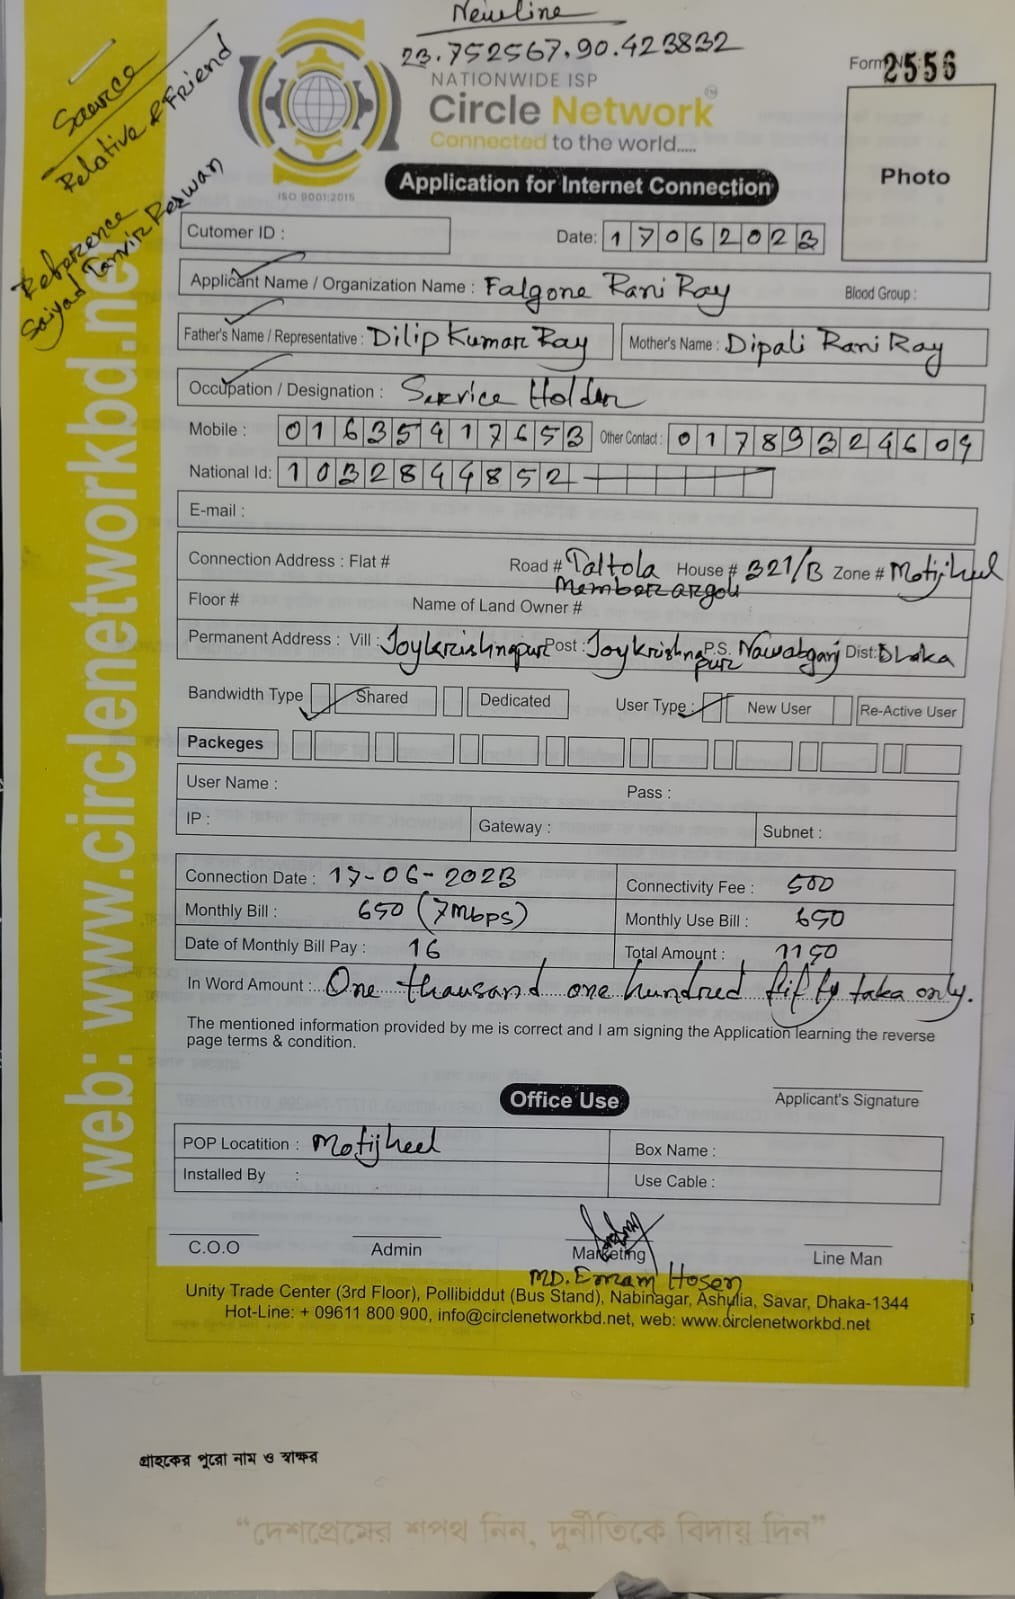 Newline
23.752567.90.423832
Source
Relative & Friend
Reference
Saiyad Tanvir Rezwan
Form No: 2556
NATIONWIDE ISP
Circle Network
Connected to the world.....
ISO 9001:2015
Application for Internet Connection
Photo
Cutomer ID :
Date: 17062023
Applicant Name / Organization Name : Falgone Rani Ray Blood Group :
Father's Name / Representative : Dilip Kumar Ray Mother's Name : Dipali Rani Ray
Occupation / Designation : Service Holder
Mobile : 01635417653 Other Contact : 01789324609
National Id: 1032844852
E-mail :
Connection Address : Flat # Road # Taltola House # 321/B Zone # Motijheel
Member argoli
Floor # Name of Land Owner #
Permanent Address : Vill : Joykrishnapur Post : Joykrishnapur P.S. Nawabganj Dist: Dhaka
Bandwidth Type Shared Dedicated User Type : New User Re-Active User
Packeges
User Name : Pass :
IP : Gateway : Subnet :
Connection Date : 17-06-2023 Connectivity Fee : 500
Monthly Bill : 650 (7Mbps) Monthly Use Bill : 650
Date of Monthly Bill Pay : 16 Total Amount : 1150
In Word Amount : One thausand one hundred fifty taka only.
The mentioned information provided by me is correct and I am signing the Application learning the reverse
page terms & condition.
Office Use
Applicant's Signature
POP Locatition : Motijheel Box Name :
Installed By : Use Cable :
C.O.O Admin Marketing Line Man
MD. Emam Hosen
Unity Trade Center (3rd Floor), Pollibiddut (Bus Stand), Nabinagar, Ashulia, Savar, Dhaka-1344
Hot-Line: + 09611 800 900, info@circlenetworkbd.net, web: www.circlenetworkbd.net
web: www.circlenetworkbd.net
গ্রাহকের পুরো নাম ও স্বাক্ষর
“দেশপ্রেমের শপথ নিন, দুর্নীতিকে বিদায় দিন”